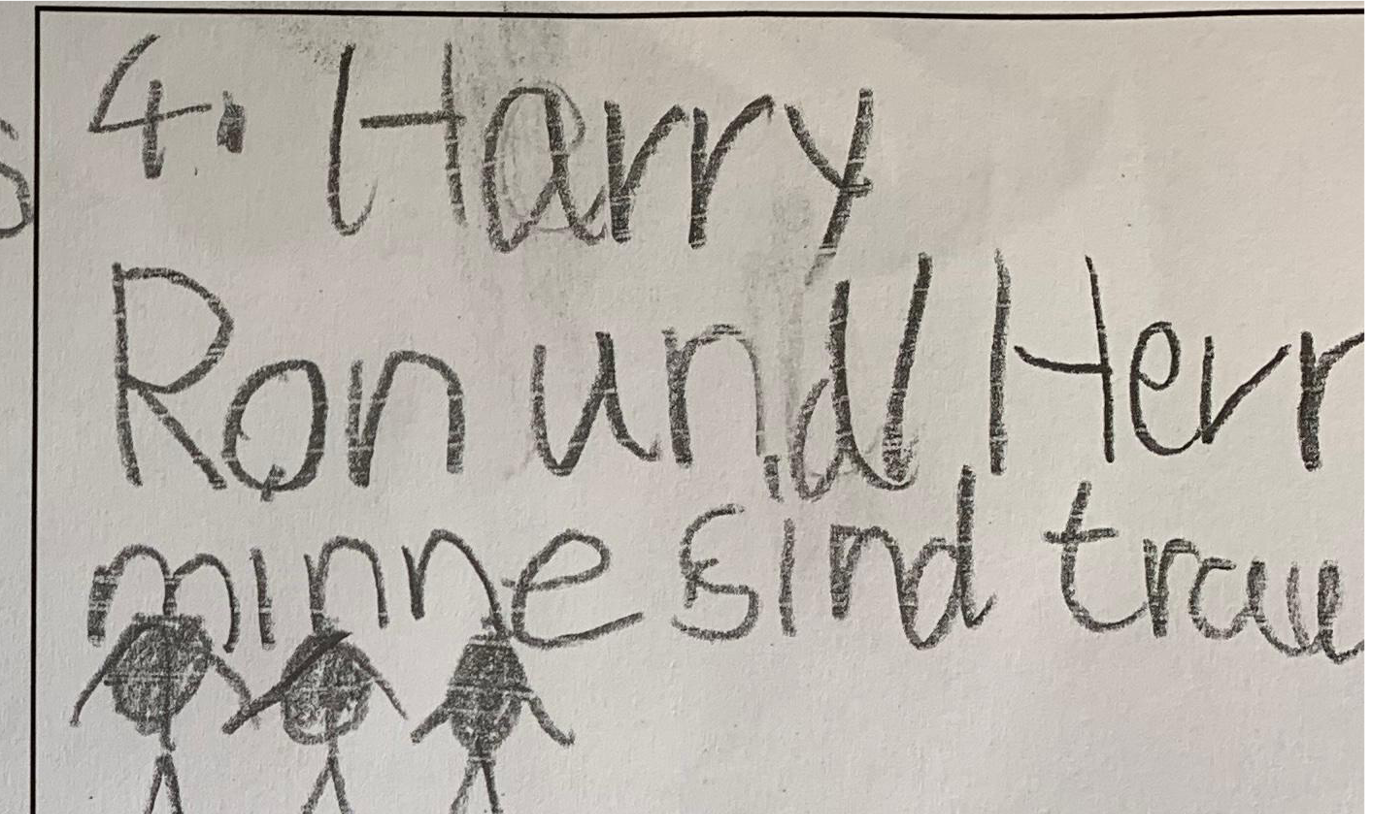 4. Harry
Ron und Herr
minne sind trau